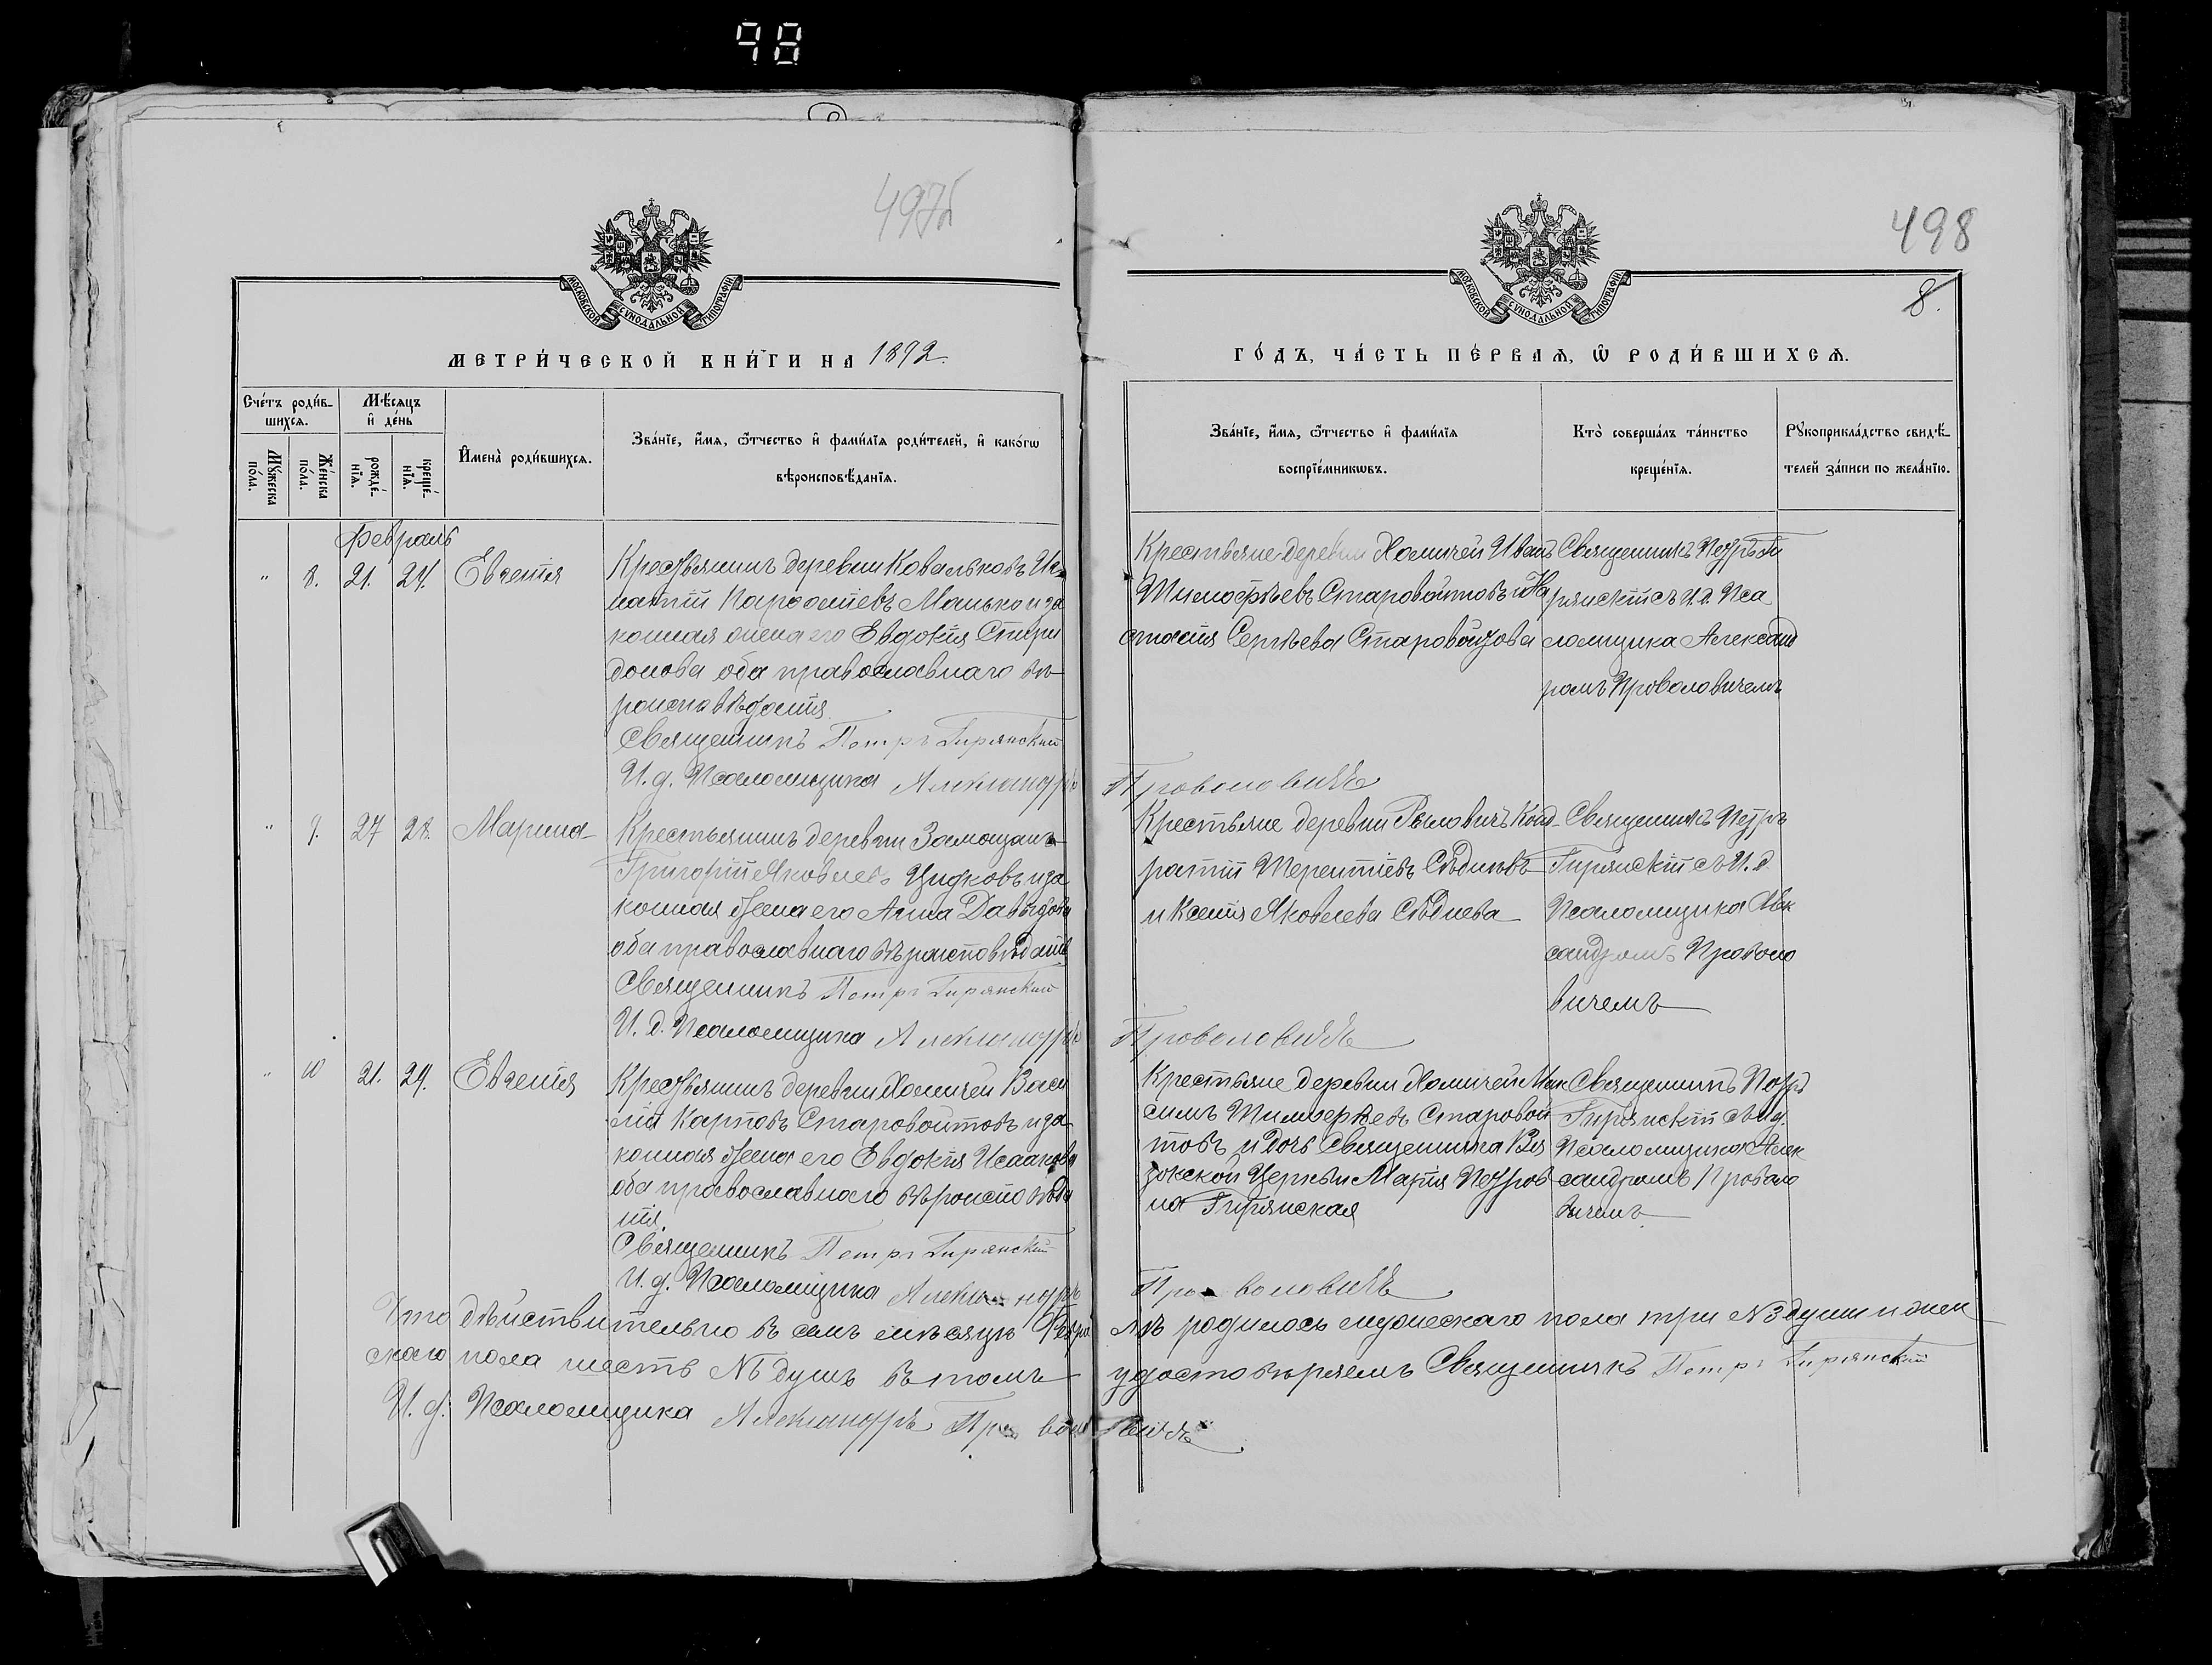 98
497б
498
8.
МОСКОВСКОЙ СѴНОДАЛЬНОЙ ТИПОГРАФІИ
МОСКОВСКОЙ СѴНОДАЛЬНОЙ ТИПОГРАФІИ
МЕТРИ́ЧЕСКОЙ КНИ́ГИ НА 1892.
ГО́ДЪ, ЧА́СТЬ ПЕ́РВАѦ, Ѡ РОДИ́ВШИХСѦ.
Сче́тъ роди́в-
шихсѧ.
Мѣ́сѧцъ
и҆ де́нь
Мꙋ́жеска
по́ла.
Же́нска
по́ла.
рожде́-
нїѧ.
креще́-
нїѧ.
И҆мена̀ роди́вшихсѧ.
Зва́нїе, и҆́мѧ, ѻ҆́тчество и҆ фами́лїѧ роди́телей, и҆ како́гѡ
вѣроисповѣ́данїѧ.
Зва́нїе, и҆́мѧ, ѻ҆́тчество и҆ фами́лїѧ
воспрїе́мникѡвъ.
Кто̀ соверша́лъ та́инство
креще́нїѧ.
Рꙋкоприкла́дство свидѣ́-
телей за́писи по жела́нїю.
Февраль
" 8. 21. 24. Евгенія
Крестьянинъ деревни Ковальковъ Иг-
натій Парфеніевъ Манько и за
конная жена его Евдокія Спири
донова оба православнаго вѣ-
роисповѣданія.
Священникъ Петръ Гирянскій
И. д. Псаломщика Александръ
Проволовичъ
Крестьяне деревни Хомичей Иванъ
Тимофѣевъ Старовойтовъ и На
стасія Сергѣева Старовойтова
Священникъ Петръ Ги
рянскій съ И. д. Пса
ломщика Александ
ромъ Проволовичемъ
" 9. 27 28. Марина
Крестьянинъ деревни Замощанъ
Григорій Яковлевъ Цидковъ и за
конная жена его Анна Давыдова
оба православнаго вѣроисповѣданія
Священникъ Петръ Гирянскій
И. д. Псаломщика Александръ
Проволовичъ
Крестьяне деревни Рыловичъ Конд-
ратій Терентіевъ Сѣдневъ
и Ксенія Яковлева Сѣднева
Священникъ Петръ
Гирянскій съ И. д.
Псаломщика Алек
сандромъ Проволо
вичемъ
" 10 21. 24. Евгенія
Крестьянинъ деревни Хомичей Васи
лій Карповъ Старовойтовъ и за
конная жена его Евдокія Исаакова
оба православнаго вѣроисповѣда
нія.
Священникъ Петръ Гирянскій
И. д. Псаломщика Александръ
Проволовичъ
Крестьяне деревни Хомичей Мак
симъ Тимофѣевъ Старовой
товъ и дочь Священника Вя
зокской Церкви Марія Петров
на Гирянская
Священникъ Петръ
Гирянскій съ И. д.
Псаломщика Алек
сандромъ Проволо
вичемъ
Что дѣйствительно въ семъ мѣсяцѣ Февра
лѣ родилось мужескаго пола три №3 души и жен
скаго пола шесть №6 душъ въ томъ
удостовѣряемъ Священникъ Петръ Гирянскій
И. д. Псаломщика Александръ Проволовичъ